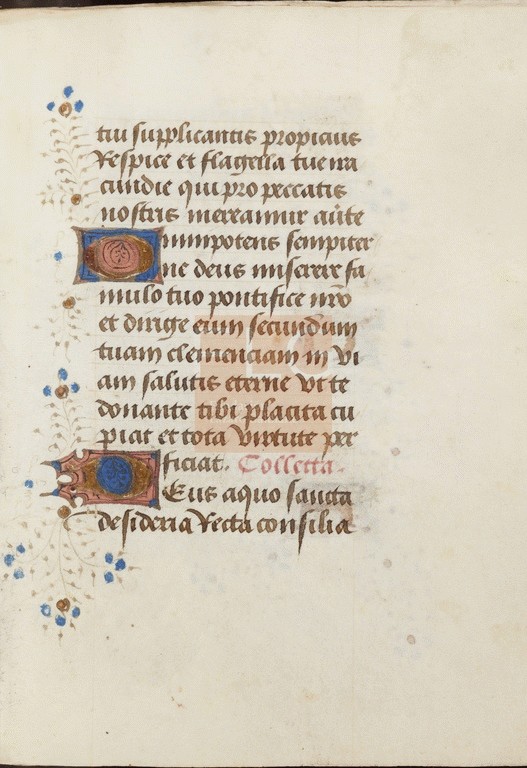 tui supplicantis propicius
Respice et flagella tue ira
cundie qui pro peccatis
nostris meremur aūte
Omnipotens sempiter
ne deus miserere fa
mulo tuo pontifice nr̄o
et dirige eum secundum
tuam clemenciam in vi
am salutis eterne vt te
donante tibi placita cu
piat et tota virtute per
ficiat. Colletta.
DEus a quo sancta
desideria Recta consilia